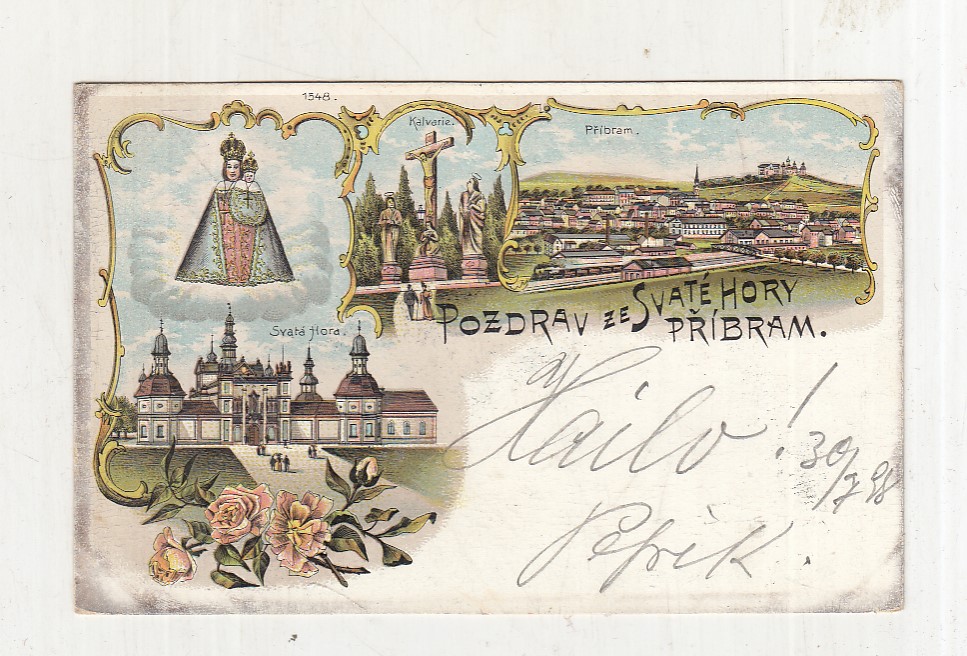 1548.
Kalvarie.
Příbram.
Svatá Hora.
POZDRAV ZE SVATÉ HORY
PŘÍBRAM.
30/7 98